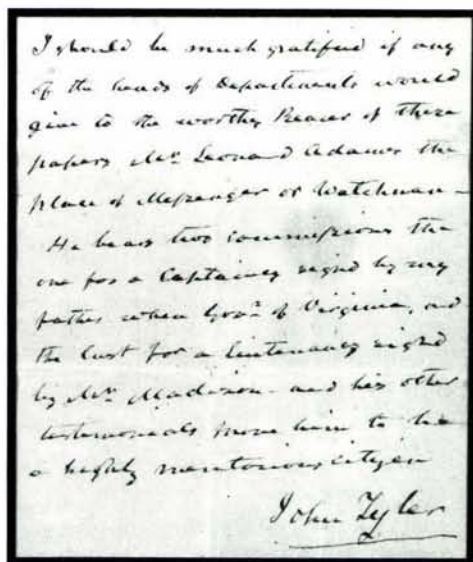 I should be much gratified if any
of the heads of Departments would
give to the worthy Bearer of these
papers Mr Leonard Adams the
place of Messenger or Watchman –
He bears two commissions the
one for a Captaincy signed by my
father when Govr. of Virginia, and
the last for a lieutenancy signed
by Mr Madison – and his other
testimonials prove him to be
a highly meritorious citizen
John Tyler